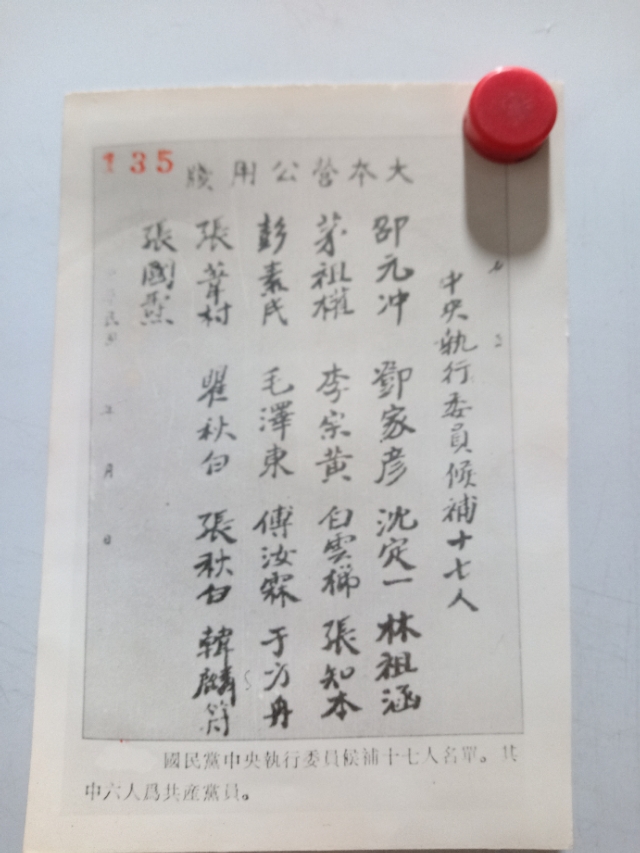 135
大本營公用牋
中央執行委員候補十七人
邵元冲 鄧家彦 沈定一 林祖涵
茅祖權 李宗黄 白雲梯 張知本
彭素民 毛澤東 傅汝霖 于方舟
張葦村 瞿秋白 張秋白 韓麟符
張國燾
中華民國 年 月 日
國民黨中央執行委員候補十七人名單。其
中六人爲共産黨員。